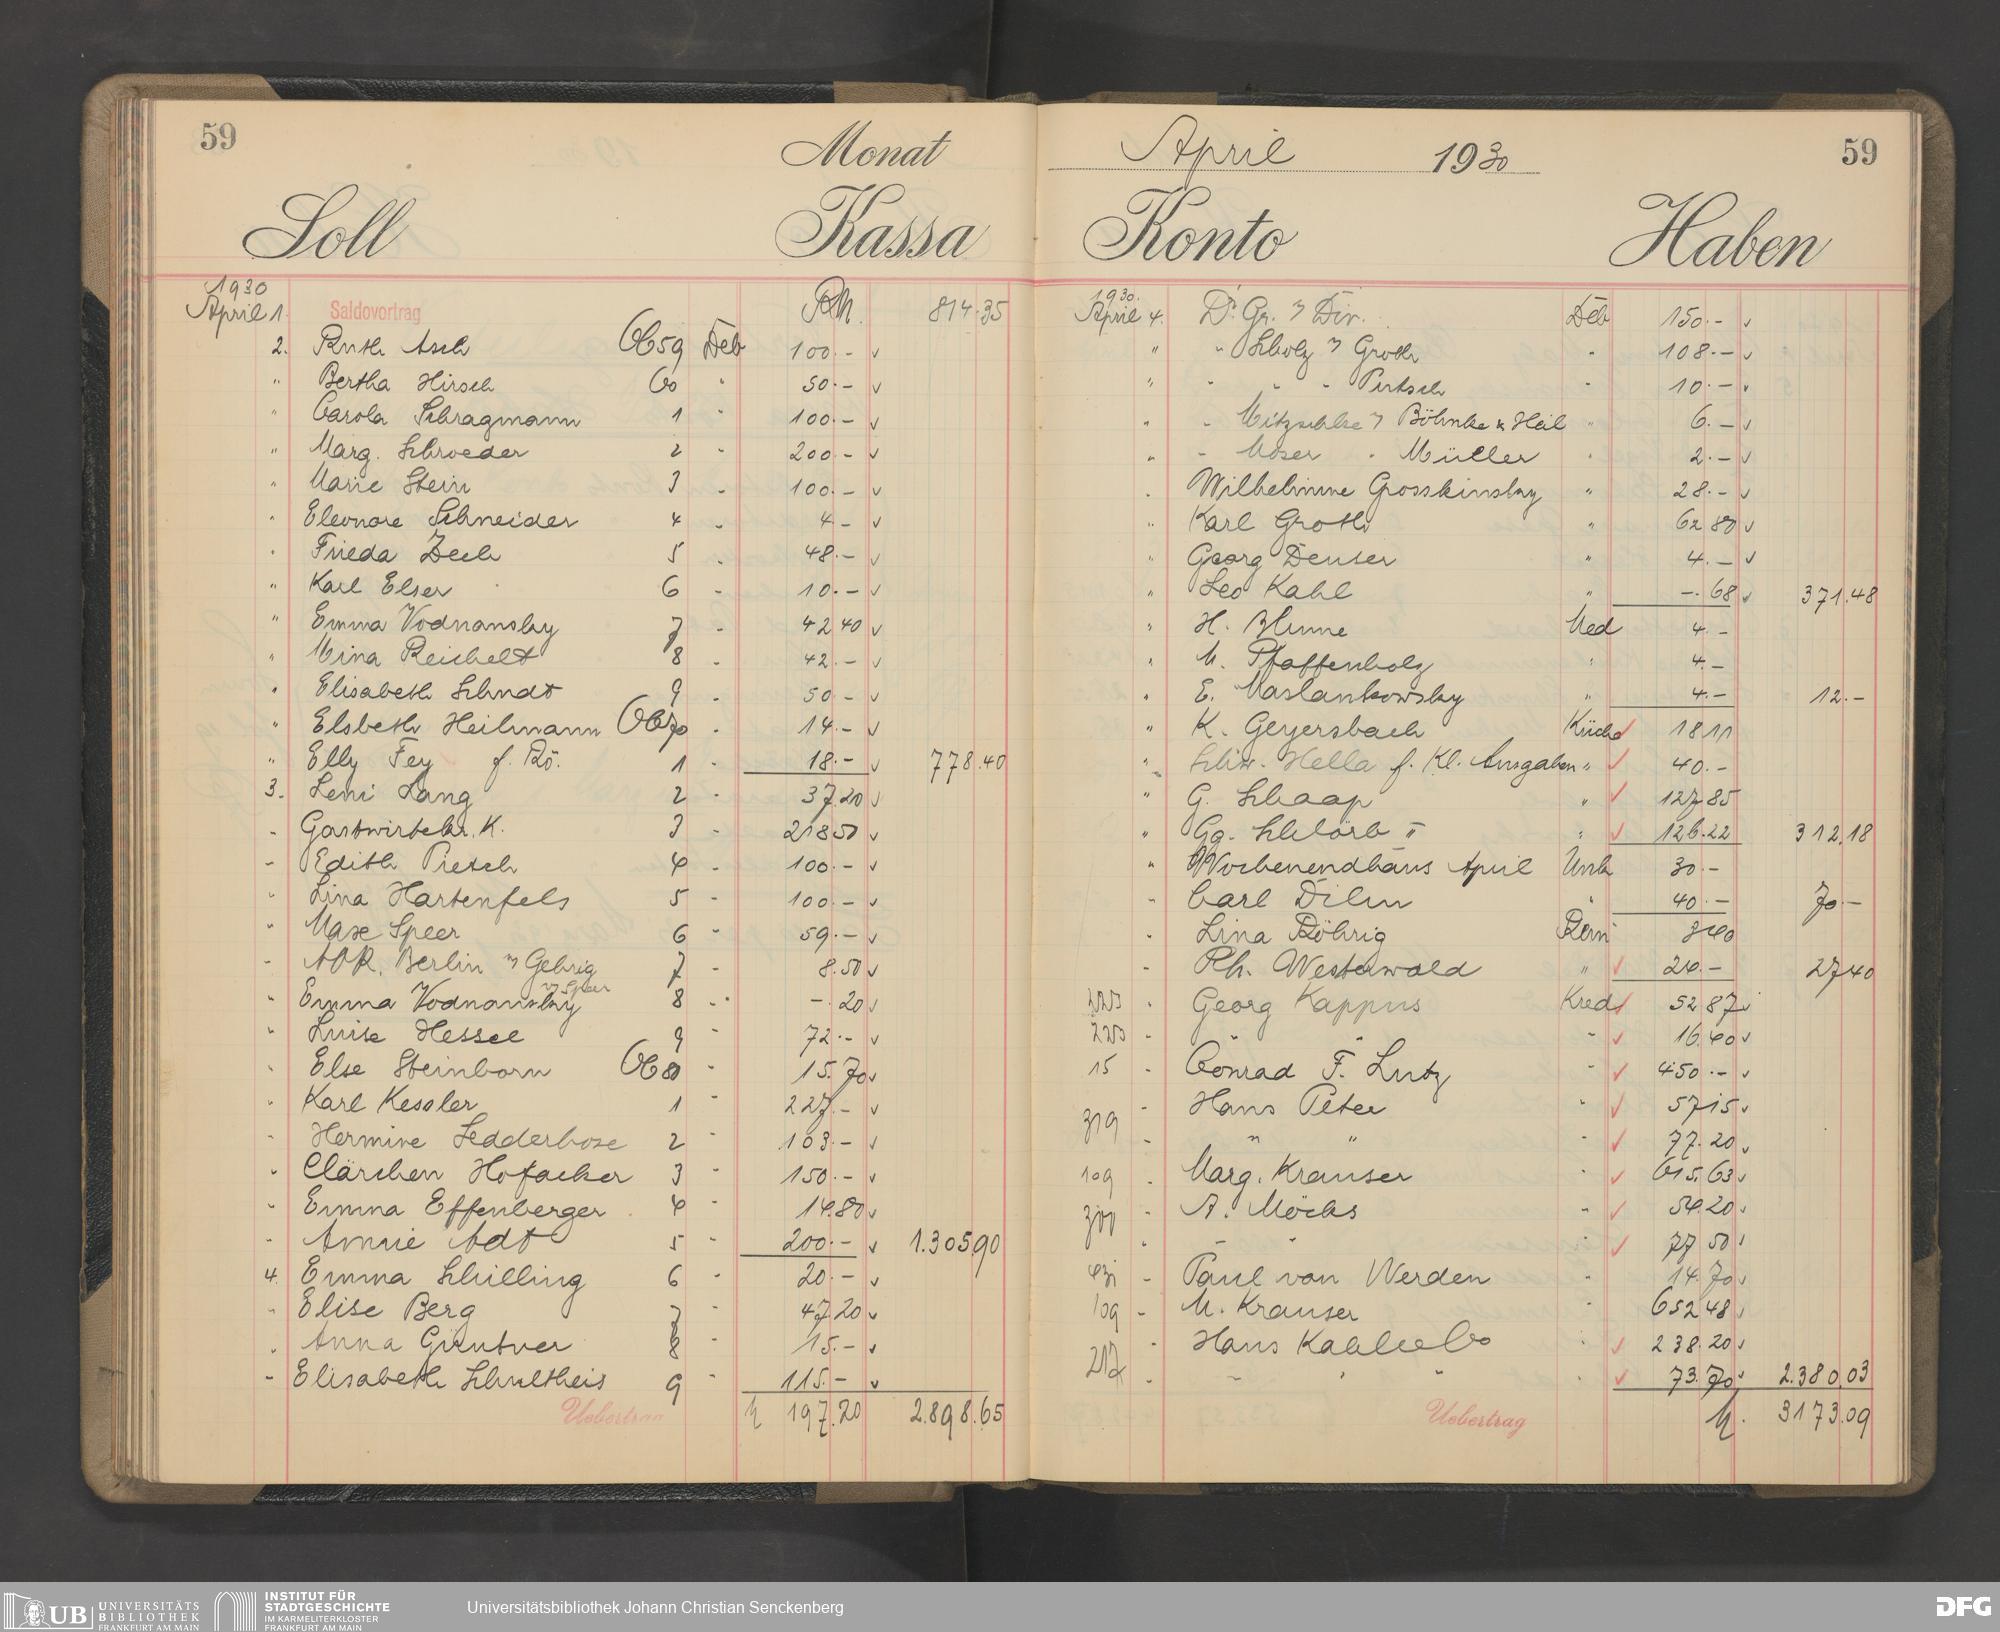 59
Monat
Soll
Kassa
1930
April 1. Saldovortrag RM 814.35
2. Ruth Asch 59 Deb 100.-
" Bertha Hirsch 60 " 50.-
" Carola Schragmann 1 " 100.-
" Marg. Schroeder 2 " 200.-
" Marie Stein 3 " 100.-
" Eleonore Schneider 4 " 4.-
" Frieda Zech 5 " 48.-
" Karl Elser 6 " 10.-
" Emma Vodnansky 7 " 42 40
" Mina Reichelt 8 " 42.-
" Elisabeth Schudt 9 " 50.-
" Elsbeth Heilmann 70 " 14.-
" Elly Fey f. Rö. 1 " 18.- 778.40
3. Leni Lang 2 " 37.20
" Gastwirtekr. K. 3 " 218 50
" Edith Pietsch 4 " 100.-
" Lina Hartenfels 5 " 100.-
" Max Speer 6 " 59.-
" AOK. Berlin Gehrig 7 " 8.50
" Emma Vodnansky Speer 8 " -.20
" Luise Hessel 9 " 72.-
" Else Steinborn 80 " 15.70
" Karl Kessler 1 " 227.-
" Hermine Ledderhose 2 " 103.-
" Clärchen Hofacker 3 " 150.-
" Emma Effenberger 4 " 14.80
" Annie Adt 5 " 200.- 1.305.90
4. Emma Schilling 6 " 20.-
" Elise Berg 7 " 47.20
" Anna Güntner 8 " 15.-
" Elisabeth Schultheis 9 " 115.-
Uebertrag 197.20 2.898.65
April 1930
59
Konto
Haben
1930.
April 4. Dr. Gr. Div. Deb 150.-
" " Scholz Groth " 108.-
" " " " Pietsch " 10.-
" " Mitzschke Böhnke & Heil " 6.-
" " Moser " Müller " 2.-
" Wilhelmine Grosskinsky " 28.-
" Karl Groth " 62 80
" Georg Denser " 4.-
" Leo Kahl " -.68 371.48
" H. Blume Med 4.-
" M. Pfaffenholz " 4.-
" E. Maslankowsky " 4.- 12.-
" K. Geyersbach Küche 18 11
" Schw. Hella f. Kl. Ausgaben " 40.-
" G. Schaap " 127.85
" Gg. Schlörb " 126.22 312.18
" Wochenendhaus April Unk 30.-
" Carl Dilm " 40.- 70.-
" Lina Röhrig 3 40
" Ph. Westerwald " 24.- 27 40
Georg Kappus Kred 52 87
" " " 16.40
15 " Conrad F. Lutz " 450.-
319 " Hans Peter " 57 15
" " " " 77.20
109 " Marg. Krauser " 615.63
300 " A. Möcks " 54.20
" " " 77 50
" Paul von Werden " 14.70
109 " M. Krauser " 652 48
217 " Hans " 238.20
" " " " 73.70 2.380.03
Uebertrag 3173.09
UB
UNIVERSITÄTS
BIBLIOTHEK
FRANKFURT AM MAIN
INSTITUT FÜR
STADTGESCHICHTE
IM KARMELITERKLOSTER
FRANKFURT AM MAIN
Universitätsbibliothek Johann Christian Senckenberg
DFG